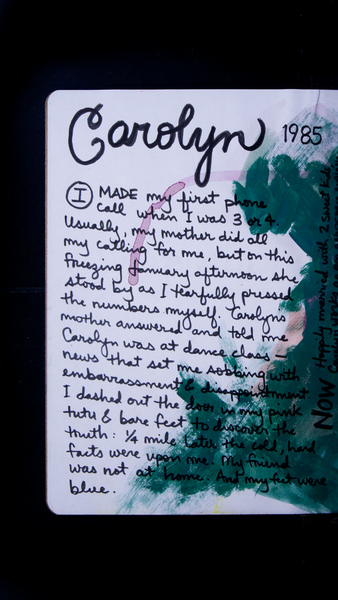 Carolyn 1985
I MADE my first phone
call when I was 3 or 4.
Usually, my mother did all
my calling for me, but on this
freezing January afternoon she
stood by as I tearfully pressed
the numbers myself. Carolyn's
mother answered and told me
Carolyn was at dance class —
news that set me sobbing with
embarrassment & disappointment.
I dashed out the door in my pink
tutu & bare feet to discover the
truth: 1/4 mile later the cold, hard
facts were upon me. My friend
was not at home. And my feet were
blue.
NOW Happily married with 2 sweet kids.